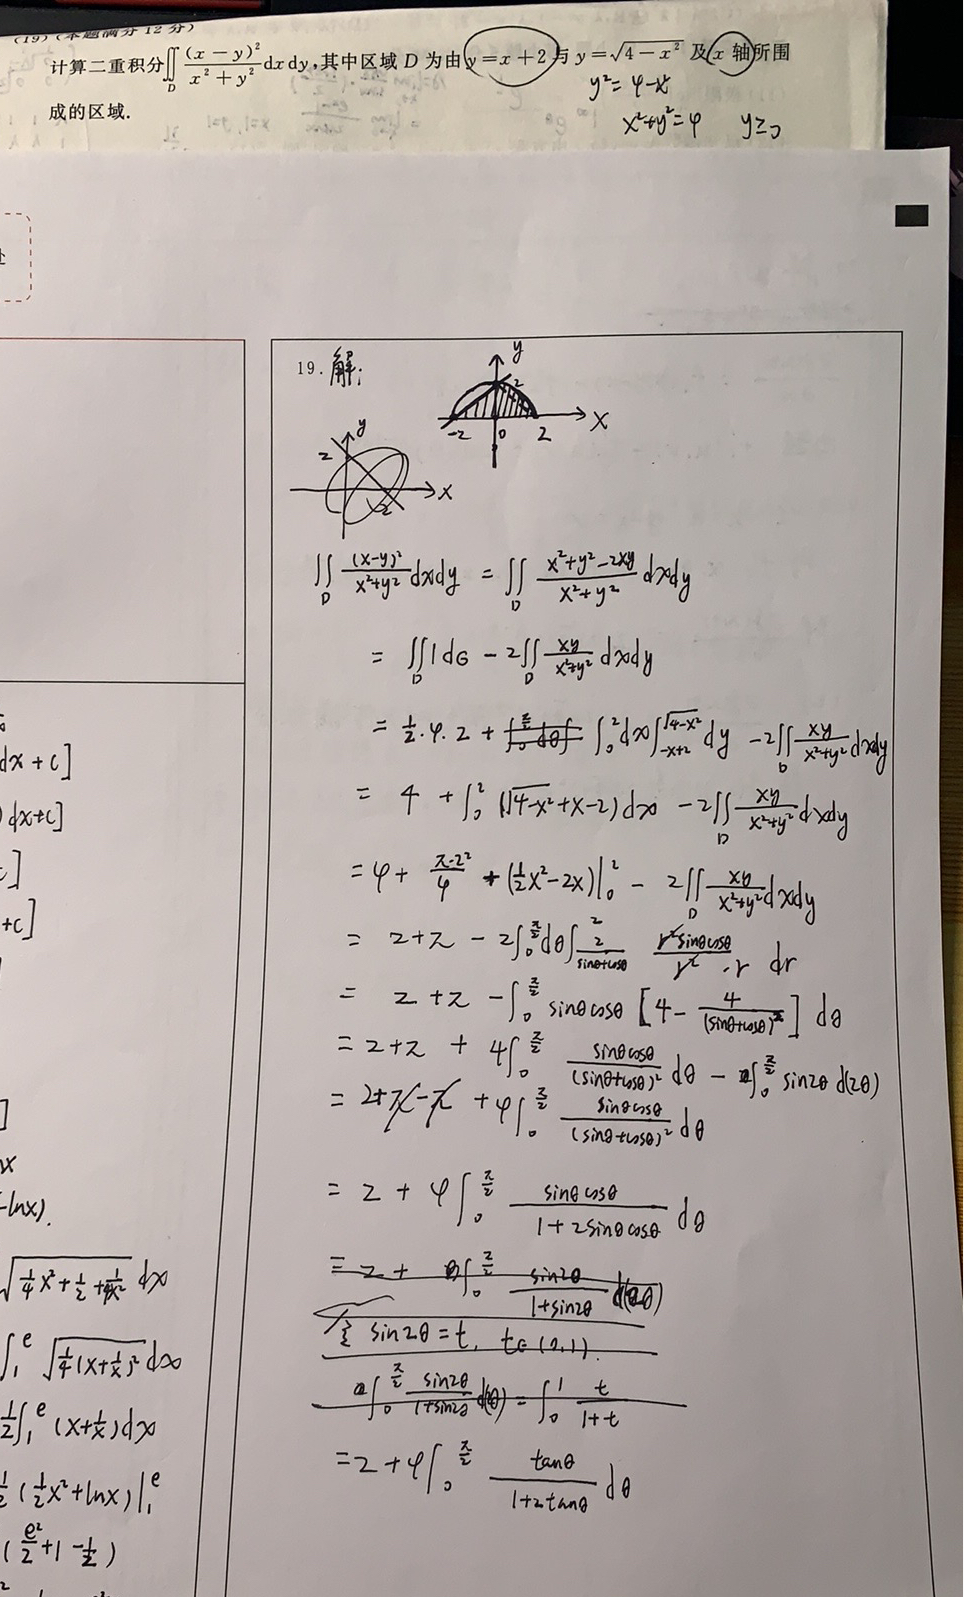 (19) (本题满分 12 分)
计算二重积分∬_D (x-y)²/(x²+y²) dx dy,其中区域 D 为由 y=x+2 与 y=√(4-x²) 及 x 轴所围
成的区域.
y²=4-x²
x²+y²=4 y≥0
19. 解:
y
2
-2 0 2 x
y
2
2 x
∬_D (x-y)²/(x²+y²) dxdy = ∬_D (x²+y²-2xy)/(x²+y²) dxdy
= ∬_D 1dσ - 2∬_D xy/(x²+y²) dxdy
= 1/2·4·2 + ∫_0^2 dx∫_{-x+2}^{√(4-x²)} dy - 2∬_D xy/(x²+y²) dxdy
= 4 + ∫_0^2 (√(4-x²)+x-2)dx - 2∬_D xy/(x²+y²) dxdy
= 4 + π·2²/4 + (1/2x²-2x)|_0^2 - 2∬_D xy/(x²+y²) dxdy
= 2+π - 2∫_0^{π/2} dθ∫_{2/(sinθ+cosθ)}^2 r²sinθcosθ/r² ·r dr
= 2+π - ∫_0^{π/2} sinθcosθ [4 - 4/(sinθ+cosθ)²] dθ
= 2+π + 4∫_0^{π/2} sinθcosθ/(sinθ+cosθ)² dθ - ∫_0^{π/2} sin2θ d(2θ)
= 2+π-π + 4∫_0^{π/2} sinθcosθ/(sinθ+cosθ)² dθ
= 2 + 4∫_0^{π/2} sinθcosθ/(1+2sinθcosθ) dθ
= 2 + ∫_0^{π/2} sin2θ/(1+sin2θ) d(2θ)
令 sin2θ=t, t∈(0,1).
∫_0^{π/2} sin2θ/(1+sin2θ) d(2θ) = ∫_0^1 t/(1+t)
= 2 + 4∫_0^{π/2} tanθ/(1+2tanθ) dθ
dx + c]
) dx+c]
]
+c]
]
x
-lnx).
√(1/4x²+1/2+1/4x²) dx
∫_1^e √(1/4(x+1/x)²) dx
1/2∫_1^e (x+1/x)dx
1/2 (1/2x²+lnx)|_1^e
(e²/2+1-1/2)